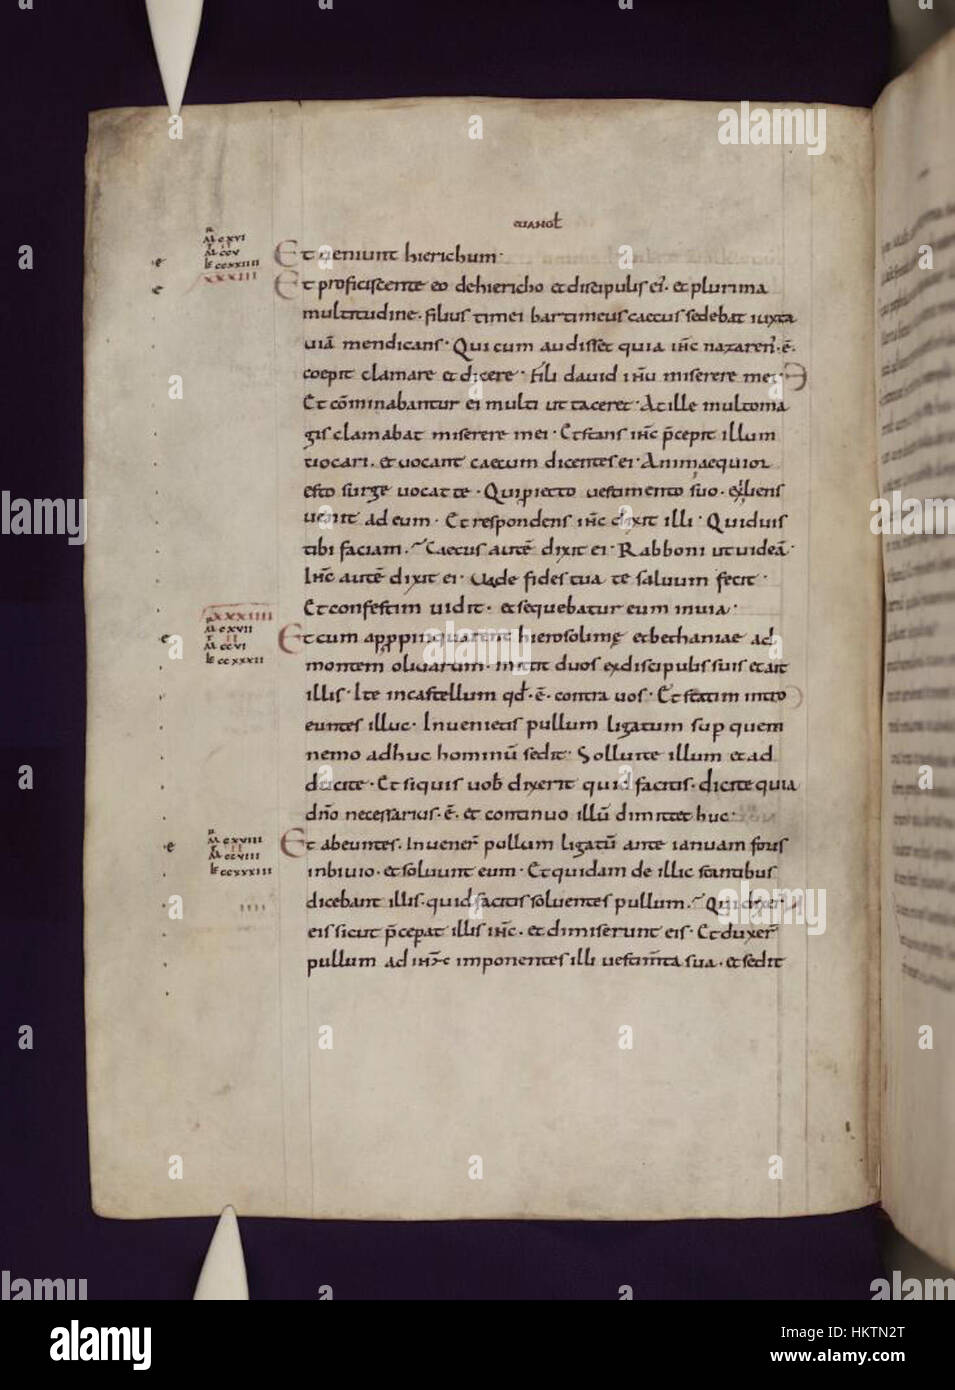 EUANGL
Et ueniunt hierichum·
M CXVI
M CCV
L CCXXIIII
XXXIII
Et proficiscente eo dehiericho et discipulis ei'. et plurima
multitudine· filius timei bartimeus caecus sedebat iuxta
uiā mendicans· Qui cum audisset quia ihc nazaren'· ē·
coepit clamare et dicere· Fili dauid ihu miserere mei·
Et cōminabantur ei multi ut taceret· At ille multo ma
gis clamabat miserere mei· Et stans ihc p̄cepit illum
uocari. et uocant caecum dicentes ei· Animaequior
esto surge uocat te· Qui piecto uestimento suo· exiliens
uenit ad eum· Et respondens ihc dixit illi· Quid uis
tibi faciam. Caecus autē dixit ei· Rabboni ut uideā·
Ihc autē dixit ei· Uade fides tua te saluum fecit·
Et confestim uidit· et sequebatur eum in uia·
XXXIIII
M CXVII
II
M CCVI
L CCXXXII
Et cum appropinquarent hierosolimę et bethaniae ad
montem oliuarum· mittit duos ex discipulis suis et ait
illis· Ite in castellum qd· ē· contra uos· Et statim intro
euntes illuc· Inuenietis pullum ligatum sup quem
nemo adhuc hominū sedit· Solluite illum et ad
ducite· Et siquis uob dixerit quid facitis· dicite quia
dno necessarius· ē· et continuo illū dimittet huc·
M CXVIII
II
M CCVIII
L CCXXXIII
Et abeuntes. Inuener pullum ligatū ante ianuam foris
in biuio· et soluunt eum· Et quidam de illic stantibus
dicebant illis· quid facitis soluentes pullum. Qui dixer
eis sicut p̄ceperat illis ihc· et dimiserunt eis· Et duxer
pullum ad ihc imponentes illi uestimta sua· et sedit
alamy
a
alamy
HKTN2T
www.alamy.com